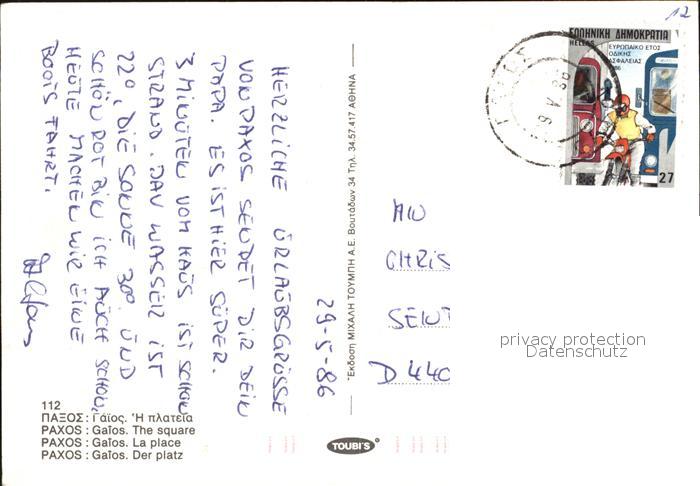 12
ΕΛΛΗΝΙΚΗ ΔΗΜΟΚΡΑΤΙΑ
HELLAS
ΕΥΡΩΠΑΪΚΟ ΕΤΟΣ
ΟΔΙΚΗΣ
ΑΣΦΑΛΕΙΑΣ
86
27
29-5-86
HERZLICHE ÜRLAÜBSGRÜSSE
VON PAXOS SENDET DIR DEIN
PAPA. ES IST HIER SÜPER.
3 MINÜTEN VOM HAÜS IST SCHON
STRAND. DAS WASSER IST
22°, DIE SONNE 30°. ÜND
SCHÖN ROT BIN ICH AÜCH SCHON,
HEÜTE MACHEN WIR EINE
BOOTS FAHRT.
Έκδοση ΜΙΧΑΛΗ ΤΟΥΜΠΗ Α.Ε. Βουτάδων 34 Τηλ. 34.57.417 ΑΘΗΝΑ
AN
CHRIS
D 440
privacy protection
Datenschutz
112
ΠΑΞΟΣ : Γάϊος. Ἡ πλατεῖα
PAXOS : Gaïos. The square
PAXOS : Gaïos. La place
PAXOS : Gaïos. Der platz
TOUBI'S